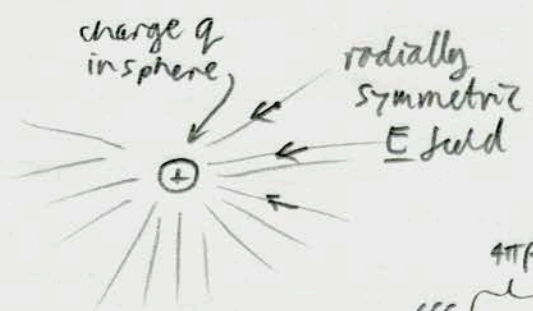 charge q
in sphere
radially
symmetric
E field
+
4π